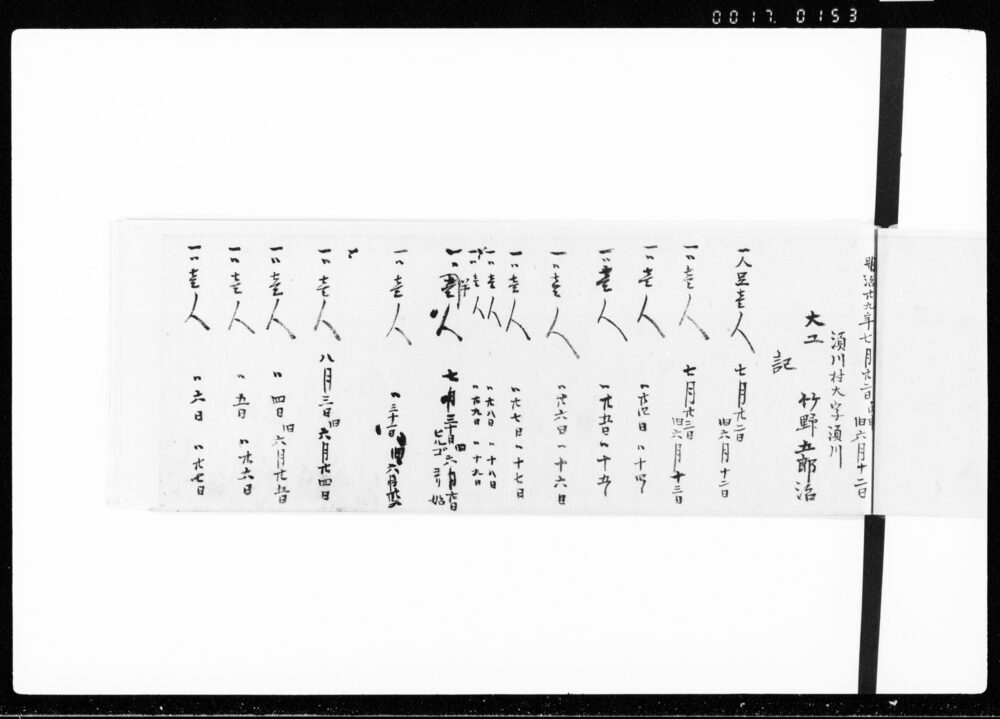 0017. 0153
明治廿九年七月廿二日 旧六月十二日
須川村大字須川
大工 竹野五郎治
記
一人足壱人 七月廿二日 旧六月十二日
一〃壱人 七月廿三日 旧六月十三日
一〃壱人 〃廿四日 〃十四
一〃壱人 〃廿五日 〃十五
一〃壱人 〃廿六日 〃十六日
一〃壱人 〃廿七日 〃十七日
一〃壱人 〃廿八日 〃十八日
一〃壱人 〃廿九日 〃十九日
一〃半人 七月三十日 旧六月廿日 ヒルゴヨリ始
一〃壱人 〃三十一日 旧六月廿
一〃壱人 八月三日 旧六月廿四日
一〃壱人 〃四日 旧六月廿五日
一〃壱人 〃五日 〃廿六日
一〃壱人 〃六日 〃廿七日